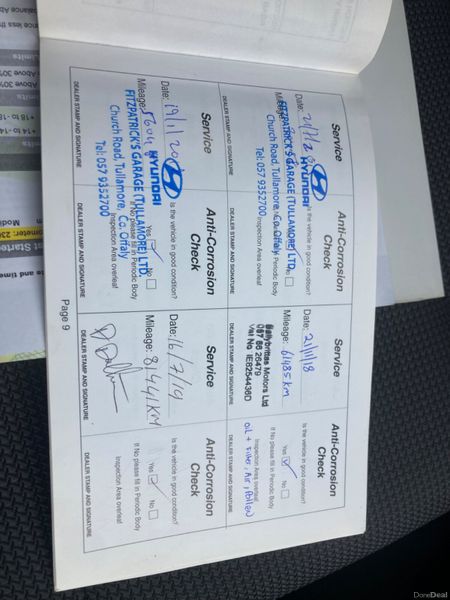 Service
Date: 21/11/18
Mileage: 61485 km
Ballybrittas Motors Ltd
057 86 26479
DEALER STAMP AND SIGNATURE
Anti-Corrosion
Check
Is the vehicle in good condition?
Yes No
If No please fill in Periodic Body
Inspection Area overleaf
Oil + Filter, Air, Pollen
DEALER STAMP AND SIGNATURE
Service
Date:
Mileage:
HYUNDAI
FITZPATRICK'S GARAGE (TULLAMORE) LTD.
Church Road, Tullamore, Co. Offaly
Tel: 057 9352700
DEALER STAMP AND SIGNATURE
Anti-Corrosion
Check
Is the vehicle in good condition?
No
Periodic Body
Inspection Area overleaf
DEALER STAMP AND SIGNATURE
Service
Date: 19/1/
Mileage:
HYUNDAI
FITZPATRICK'S GARAGE (TULLAMORE) LTD.
Church Road, Tullamore, Co. Offaly
Tel: 057 9352700
DEALER STAMP AND SIGNATURE
Anti-Corrosion
Check
Is the vehicle in good condition?
Yes No
If No please fill in Periodic Body
Inspection Area overleaf
DEALER STAMP AND SIGNATURE
Service
Date: 16/7/19
Mileage: 81441 KM
DEALER STAMP AND SIGNATURE
Anti-Corrosion
Check
Is the vehicle in good condition?
Yes No
If No please fill in Periodic Body
Inspection Area overleaf
DEALER STAMP AND SIGNATURE
Page 9
DoneDeal